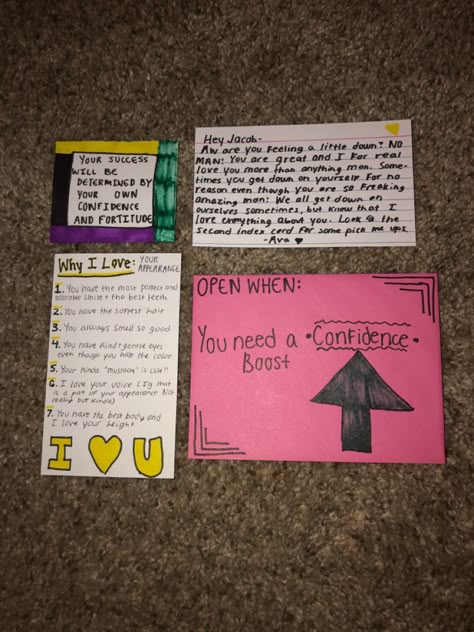 YOUR SUCCESS
WILL BE
DETERMINED BY
YOUR OWN
CONFIDENCE
AND FORTITUDE
Hey Jacob-
Aw are you feeling a little down? NO
MAN! You are great and I for real
love you more than anything man. Some-
times you get down on yourself for no
reason even though you are so freaking
amazing man! We all get down on
ourselves sometimes, but know that I
love everything about you. Look @ the
second index card for some pick me ups.
-Ava ♥
Why I Love: YOUR
APPEARANCE
1. You have the most perfect and
adorable smile + the best teeth
2. You have the softest hair
3. You always smell so good
4. You have kind + gentle eyes
even though you hate the color
5. Your kinda "mustache" is cute!!
6. I love your voice (Ig that
is a part of your appearance. Not
really but kinda)
7. You have the best body and
I love your height
I ♥ U
OPEN WHEN:
You need a •Confidence•
Boost